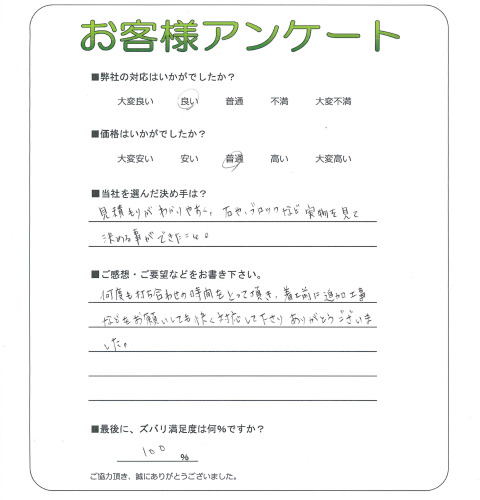 お客様アンケート
■弊社の対応はいかがでしたか？
大変良い 良い 普通 不満 大変不満
■価格はいかがでしたか？
大変安い 安い 普通 高い 大変高い
■当社を選んだ決め手は？
見積もりが わかりやすく、石や、ブロックなど実物を見て
決める事ができたこと。
■ご感想・ご要望などをお書き下さい。
何度も打ち合わせの時間をとって頂き、着工前に追加工事
などをお願いしても快く対応して下さり ありがとうございま
した。
■最後に、ズバリ満足度は何％ですか？
100 %
ご協力頂き、誠にありがとうございました。